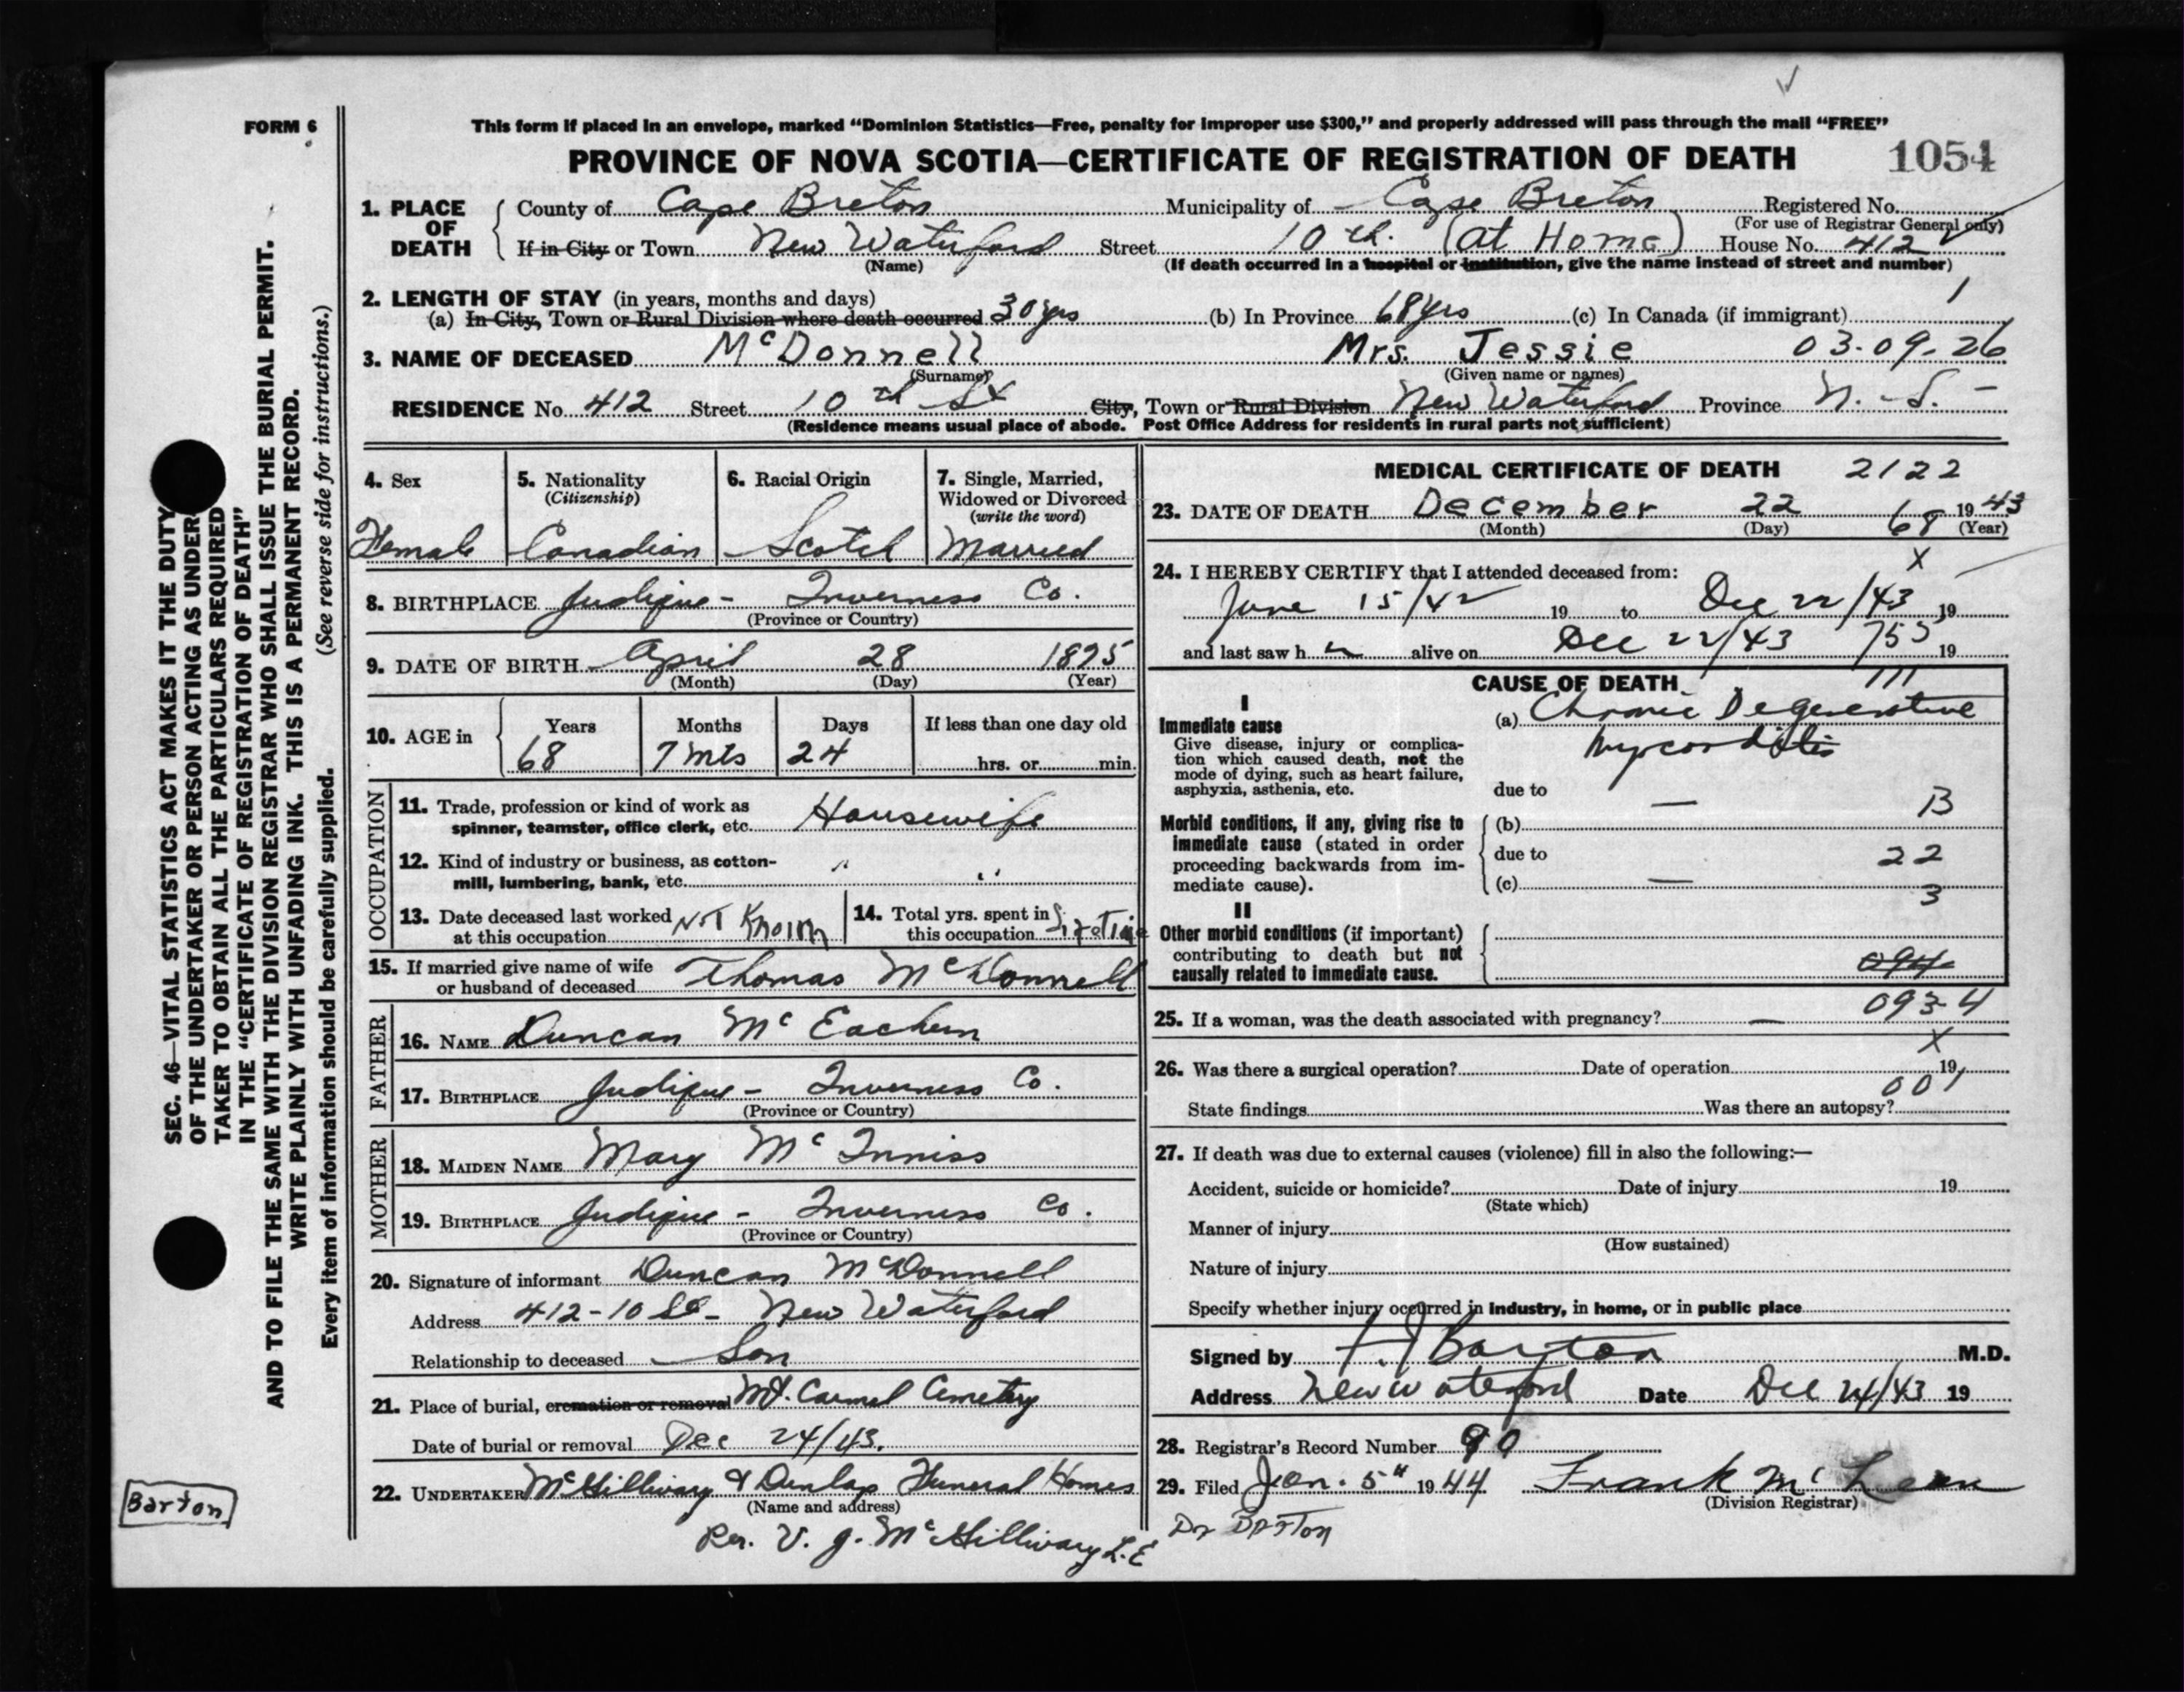 FORM 6
This form if placed in an envelope, marked “Dominion Statistics—Free, penalty for improper use $300,” and properly addressed will pass through the mail “FREE”
PROVINCE OF NOVA SCOTIA—CERTIFICATE OF REGISTRATION OF DEATH 1054
1. PLACE OF DEATH County of Cape Breton Municipality of Cape Breton Registered No.
(For use of Registrar General only)
If in City or Town New Waterford Street 10 th. (at Home) House No. 412
(Name) (If death occurred in a hospital or institution, give the name instead of street and number)
2. LENGTH OF STAY (in years, months and days)
(a) In City, Town or Rural Division where death occurred 30 yrs (b) In Province 68 yrs (c) In Canada (if immigrant) 1
3. NAME OF DECEASED McDonnell Mrs. Jessie 03-09-26
(Surname) (Given name or names)
RESIDENCE No. 412 Street 10 th St City, Town or Rural Division New Waterford Province N. S. -
(Residence means usual place of abode. Post Office Address for residents in rural parts not sufficient)
4. Sex
Female
5. Nationality
(Citizenship)
Canadian
6. Racial Origin
Scotch
7. Single, Married,
Widowed or Divorced
(write the word)
Married
8. BIRTHPLACE Judique - Inverness Co.
(Province or Country)
9. DATE OF BIRTH April 28 1875
(Month) (Day) (Year)
10. AGE in Years Months Days If less than one day old
68 7 mts 24 hrs. or min.
OCCUPATION
11. Trade, profession or kind of work as
spinner, teamster, office clerk, etc. Housewife
12. Kind of industry or business, as cotton-
mill, lumbering, bank, etc. " "
13. Date deceased last worked
at this occupation Not Known
14. Total yrs. spent in
this occupation Lifetime
15. If married give name of wife
or husband of deceased Thomas McDonnell
FATHER
16. NAME Duncan Mc Eachern
17. BIRTHPLACE Judique - Inverness Co.
(Province or Country)
MOTHER
18. MAIDEN NAME Mary Mc Inniss
19. BIRTHPLACE Judique - Inverness Co.
(Province or Country)
20. Signature of informant Duncan McDonnell
Address 412-10 St - New Waterford
Relationship to deceased Son
21. Place of burial, cremation or removal Mt. Carmel Cemetery
Date of burial or removal Dec 24/43.
22. UNDERTAKER McGillivary & Dunlap Funeral Homes
(Name and address)
Per. V. J. McGillivary L.E
MEDICAL CERTIFICATE OF DEATH 2122
23. DATE OF DEATH December 22 1943
(Month) (Day) 68 (Year)
X
24. I HEREBY CERTIFY that I attended deceased from:
June 15/42 19 to Dec 22/43 19
and last saw h alive on Dec 22/43 19
CAUSE OF DEATH
I
Immediate cause
Give disease, injury or complica-
tion which caused death, not the
mode of dying, such as heart failure,
asphyxia, asthenia, etc.
(a) Chronic Degenerative
Myocarditis
due to — B
Morbid conditions, if any, giving rise to
immediate cause (stated in order
proceeding backwards from im-
mediate cause).
(b)
due to 22
(c) — 3
II
Other morbid conditions (if important)
contributing to death but not
causally related to immediate cause.
094
093-4
25. If a woman, was the death associated with pregnancy? —
X
26. Was there a surgical operation? Date of operation 19
001
State findings Was there an autopsy?
27. If death was due to external causes (violence) fill in also the following:—
Accident, suicide or homicide? Date of injury 19
(State which)
Manner of injury
(How sustained)
Nature of injury
Specify whether injury occurred in industry, in home, or in public place
Signed by F. J Barton M.D.
Address New Waterford Date Dec 24/43 19
28. Registrar's Record Number 90
29. Filed Jan. 5" 1944 Frank McLean
(Division Registrar)
Dr Barton
SEC. 46—VITAL STATISTICS ACT MAKES IT THE DUTY
OF THE UNDERTAKER OR PERSON ACTING AS UNDER-
TAKER TO OBTAIN ALL THE PARTICULARS REQUIRED
IN THE “CERTIFICATE OF REGISTRATION OF DEATH”
AND TO FILE THE SAME WITH THE DIVISION REGISTRAR WHO SHALL ISSUE THE BURIAL PERMIT.
WRITE PLAINLY WITH UNFADING INK. THIS IS A PERMANENT RECORD.
Every item of information should be carefully supplied. (See reverse side for instructions.)
Barton